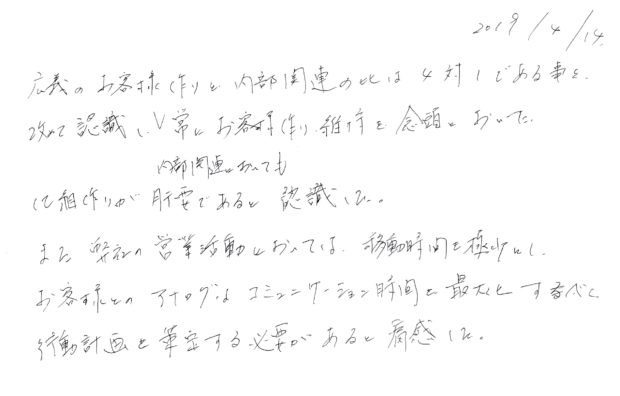 2019/4/14.
広義のお客様作りと内部関連の比は4対1である事を、
改めて認識し、常にお客様作り、維持を念頭においた
内部関連においても
仕組作りが肝要であると認識した。
また弊社の営業活動においては、移動時間を極小化し、
お客様とのアナログなコミュニケーション時間を最大化するべく
行動計画を策定する必要があると痛感した。